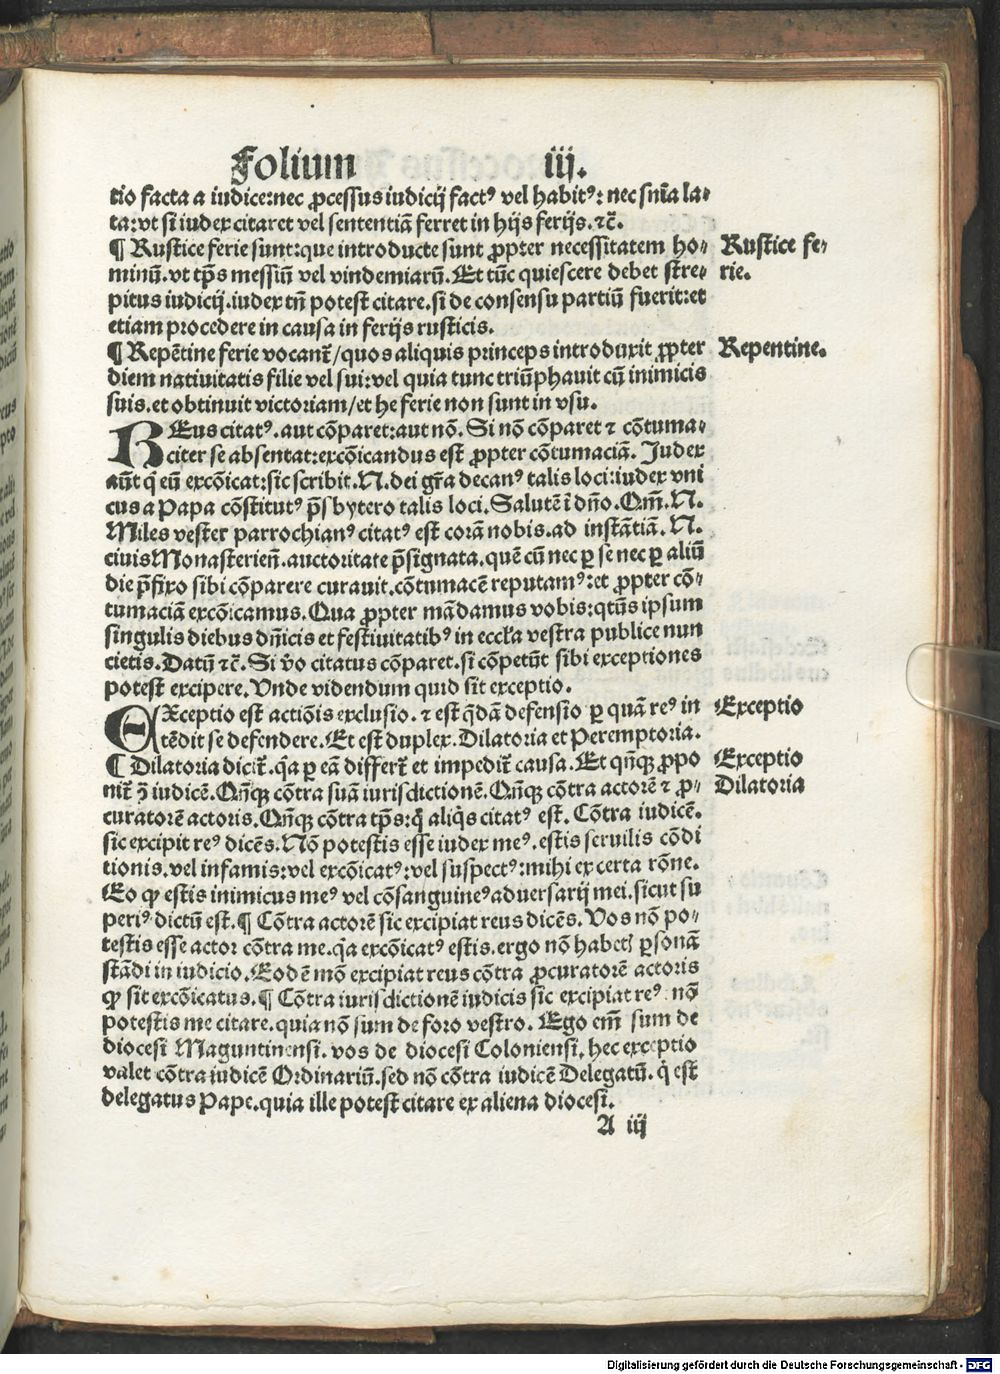 Folium iij.
tio facta a iudice:nec ꝓcessus iudicij factꝰ vel habitꝰ: nec snĩa la-
ta:vt si iudex citaret vel sententiã ferret in hijs ferijs. ⁊c̃.
¶ Rustice ferie sunt:que introducte sunt ꝓpter necessitatem ho-
minũ. vt tp̃s messiũ vel vindemiarũ. Et tũc quiescere debet stre-
pitus iudicij. iudex tñ potest citare. si de consensu partiũ fuerit:et
etiam procedere in causa in ferijs rusticis.
Rustice fe-
rie.
¶ Repẽtine ferie vocant̃/quos aliquis princeps introduxit ꝓpter
diem nativitatis filie vel sui:vel quia tunc triũphauit cũ inimicis
suis. et obtinuit victoriam/et he ferie non sunt in vsu.
Repentine.
REus citatꝰ. aut cõparet:aut nõ. Si nõ cõparet ⁊ cõtuma-
citer se absentat:excõicandus est ꝓpter cõtumaciã. Iudex
aũt q̃ eũ excõicat:sic scribit. N. dei gr̃a decanꝰ talis loci:iudex vni
cus a Papa cõstitutꝰ p̃sbytero talis loci. Salutẽ ĩ dño. Qm̃. N.
Miles vester parrochianꝰ citatꝰ est corã nobis. ad instãtiã. N.
ciuis Monasteriẽn. auctoritate p̃signata. quẽ cũ nec ꝑ se nec ꝑ aliũ
die p̃fixo sibi cõparere curauit. cõtumacẽ reputamꝰ:et ꝓpter cõ-
tumaciã excõicamus. Qua ꝓpter mãdamus vobis:qtũs ipsum
singulis diebus dñicis et festiuitatibꝰ in eccl̃a vestra publice nun
cietis. Datũ ⁊c̃. Si v̑o citatus cõparet. si cõpetũt sibi exceptiones
potest excipere. Vnde videndum quid sit exceptio.
EXceptio est actiõis exclusio. ⁊ est q̃dã defensio ꝑ quã reꝰ in
tẽdit se defendere. Et est duplex. Dilatoria et Peremptoria.
Exceptio
¶ Dilatoria dicit̃. q̃a ꝑ eã differt̃ et impedit̃ causa. Et qñqꝫ ꝓpo
nit̃ ꝯ̃ iudicẽ. Qñqꝫ cõtra suã iurisdictionẽ. Qñqꝫ cõtra actorẽ ⁊ ꝓ-
curatorẽ actoris. Qñqꝫ cõtra tp̃s:q̃ aliq̃s citatꝰ est. Cõtra iudicẽ.
Exceptio
Dilatoria
sic excipit reꝰ dicẽs. Nõ potestis esse iudex meꝰ. estis seruilis cõdi
tionis. vel infamis:vel excõicatꝰ:vel suspectꝰ:mihi ex certa rõne.
Eo ꝙ estis inimicus meꝰ vel cõsanguineꝰ aduersarij mei. sicut su
periꝰ dictũ est. ¶ Cõtra actorẽ sic excipiat reus dicẽs. Vos nõ po-
testis esse actor cõtra me. q̃a excõicatꝰ estis. ergo nõ habetꝭ ꝑsonã
stãdi in iudicio. Eodẽ mõ excipiat reus cõtra ꝓcuratorẽ actoris
ꝙ sit excõicatus. ¶ Cõtra iurisdictionẽ iudicis sic excipiat reꝰ. nõ
potestis me citare. quia nõ sum de foro vestro. Ego em̃ sum de
diocesi Maguntinensi. vos de diocesi Coloniensi. hec exceptio
valet cõtra iudicẽ Ordinariũ. sed nõ cõtra iudicẽ Delegatũ. q̃ est
delegatus Pape. quia ille potest citare ex aliena diocesi.
A iij
Digitalisierung gefördert durch die Deutsche Forschungsgemeinschaft - DFG